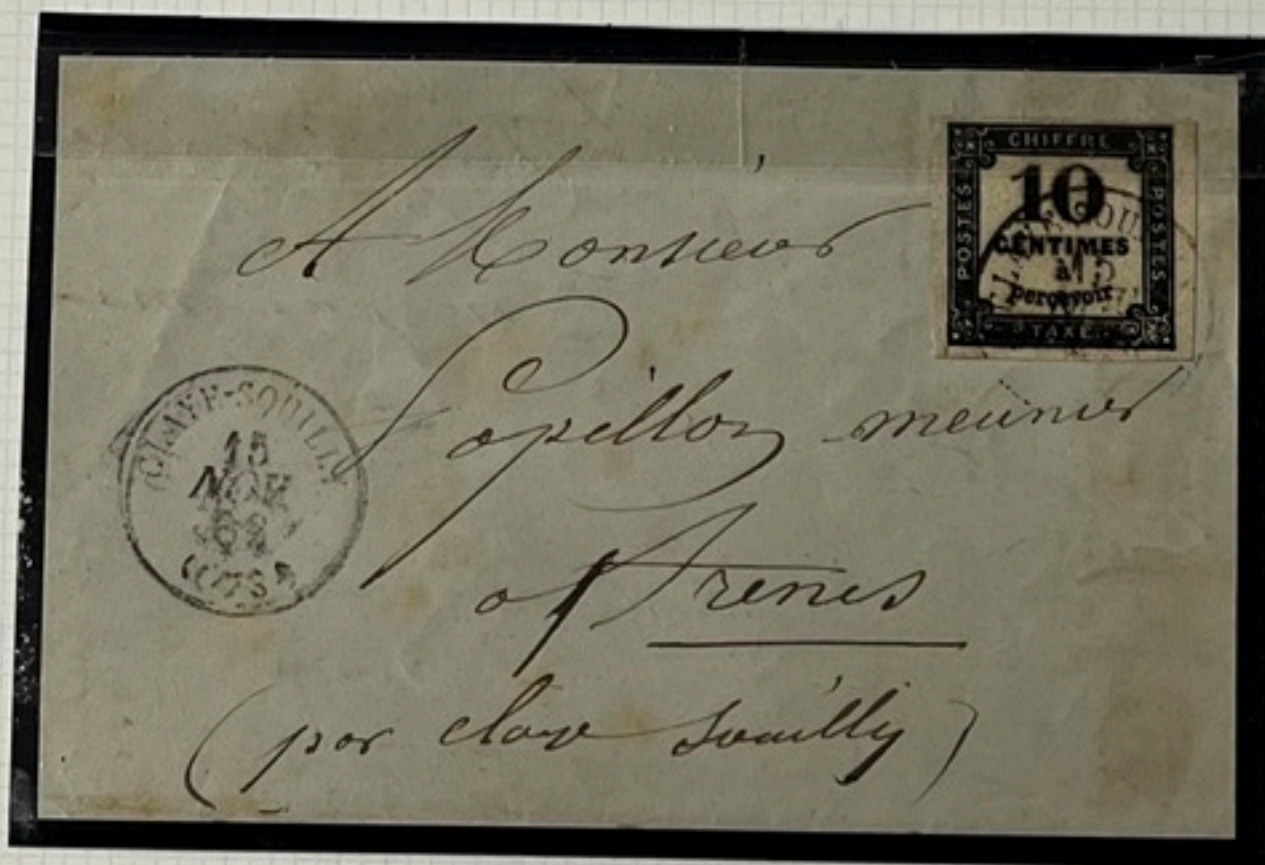 CHIFFRE
POSTES
10
CENTIMES
à
percevoir
POSTES
TAXE
15
A Monsieur
Papillon meunier
à Fresnes
(par claye Souilly)
CLAYE-SOUILLY
15
NOV